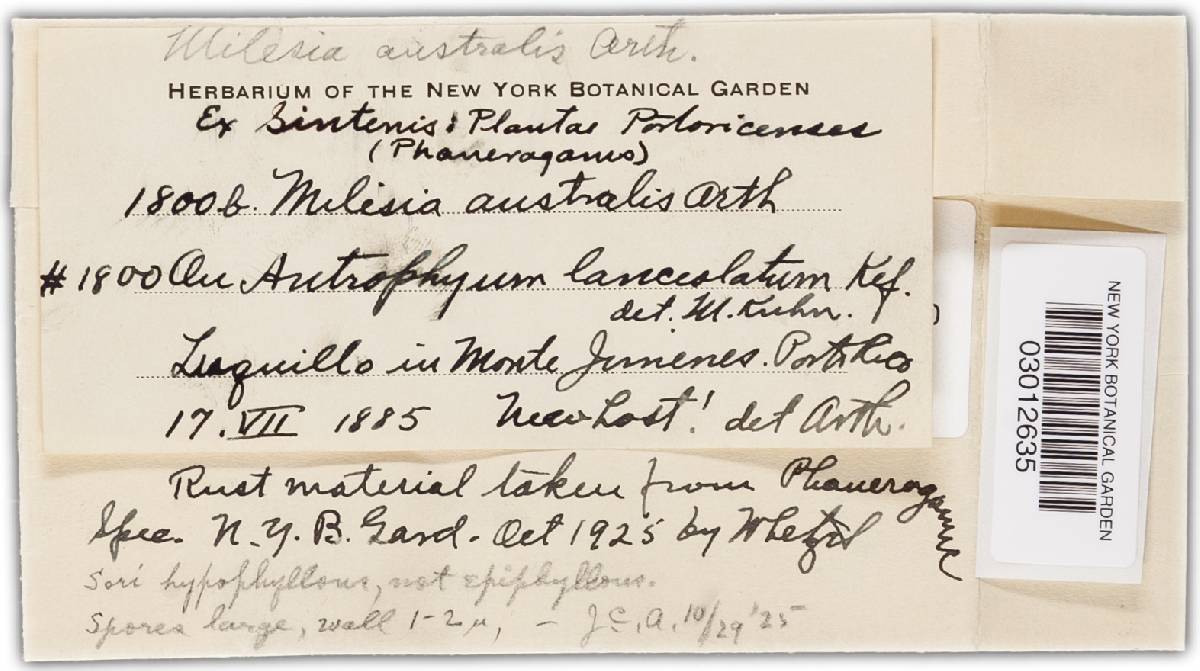 Milesia australis Arth.
HERBARIUM OF THE NEW YORK BOTANICAL GARDEN
Ex Sintenis: Plantae Portoricenses
(Phanerogams)
1800b. Milesia australis Arth
#1800 On Antrophyum lanceolatum Klf.
det. M. Kuhn.
Luquillo in Monte Jimenes. Porto Rico
17. VII 1885 New host! det Arth.
Rust material taken from Phanerogamic
Spec. N.Y.B. Gard. Oct 1925 by Whetzel
Sori hypophyllous, not epiphyllous.
Spores large, wall 1-2 µ, - J.C.A. 10/29 '25
NEW YORK BOTANICAL GARDEN
03012635